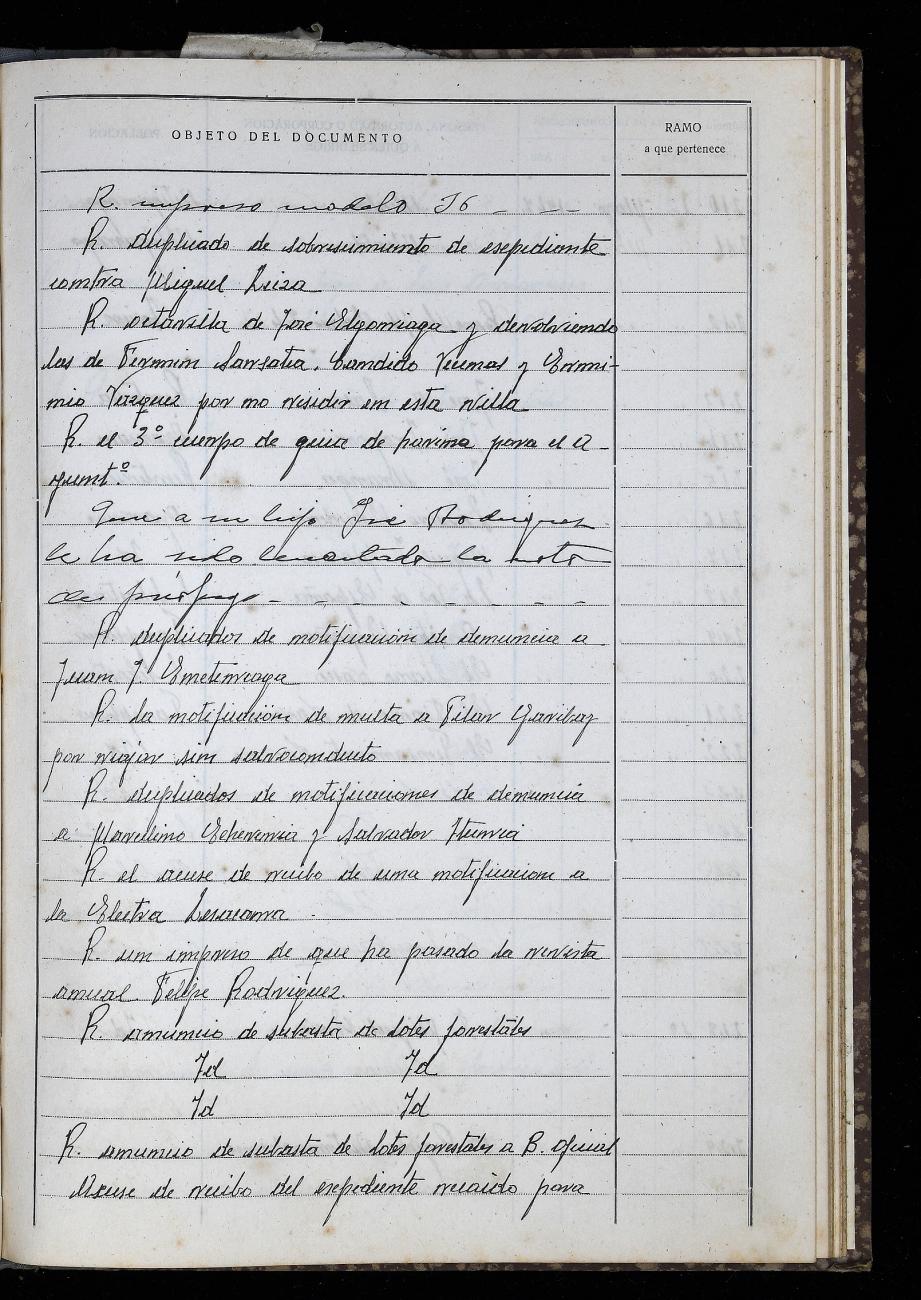 OBJETO DEL DOCUMENTO
RAMO
a que pertenece
R. impreso modelo J6 - - -
R. duplicado de sobresimiento de esepediente
contra Miguel Leiza
R. octavilla de José Elgorriaga y devolviendo
las de Fermin Sansatea, Candido y Ermi-
nio Vázquez por no residir en esta villa
R. el 3º cuerpo de guia de harina para el a-
yunt.º
Que a su hijo José Rodriguez
le ha sido levantada la nota
de prófugo - - - - - -
R. duplicados de notificación de denuncia a
Juan J. Emetenraga
R. la notificación de multa a Pilar Garibay
por viajar sin salvoconducto
R. duplicados de notificaciones de denuncia
a Marcelino Echeverria y Salvador Iturria
R. el acuse de recibo de una notificacion a
la Electra Lesacana
R. un impreso de que ha pasado la revista
anual Felipe Rodriguez.
R. anuncio de subasta de lotes forestales
Id Id
Id Id
R. anuncio de subasta de lotes forestales a B. Oficial
Acuse de recibo del esepediente para